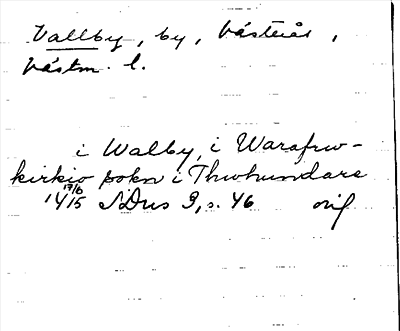 Vallby, by, Västerås,
Västm. l.
i Walby, i Warafrw-
kirkio sokn i Thwhundare
17/6 1415 SDns 3, s. 46 orig